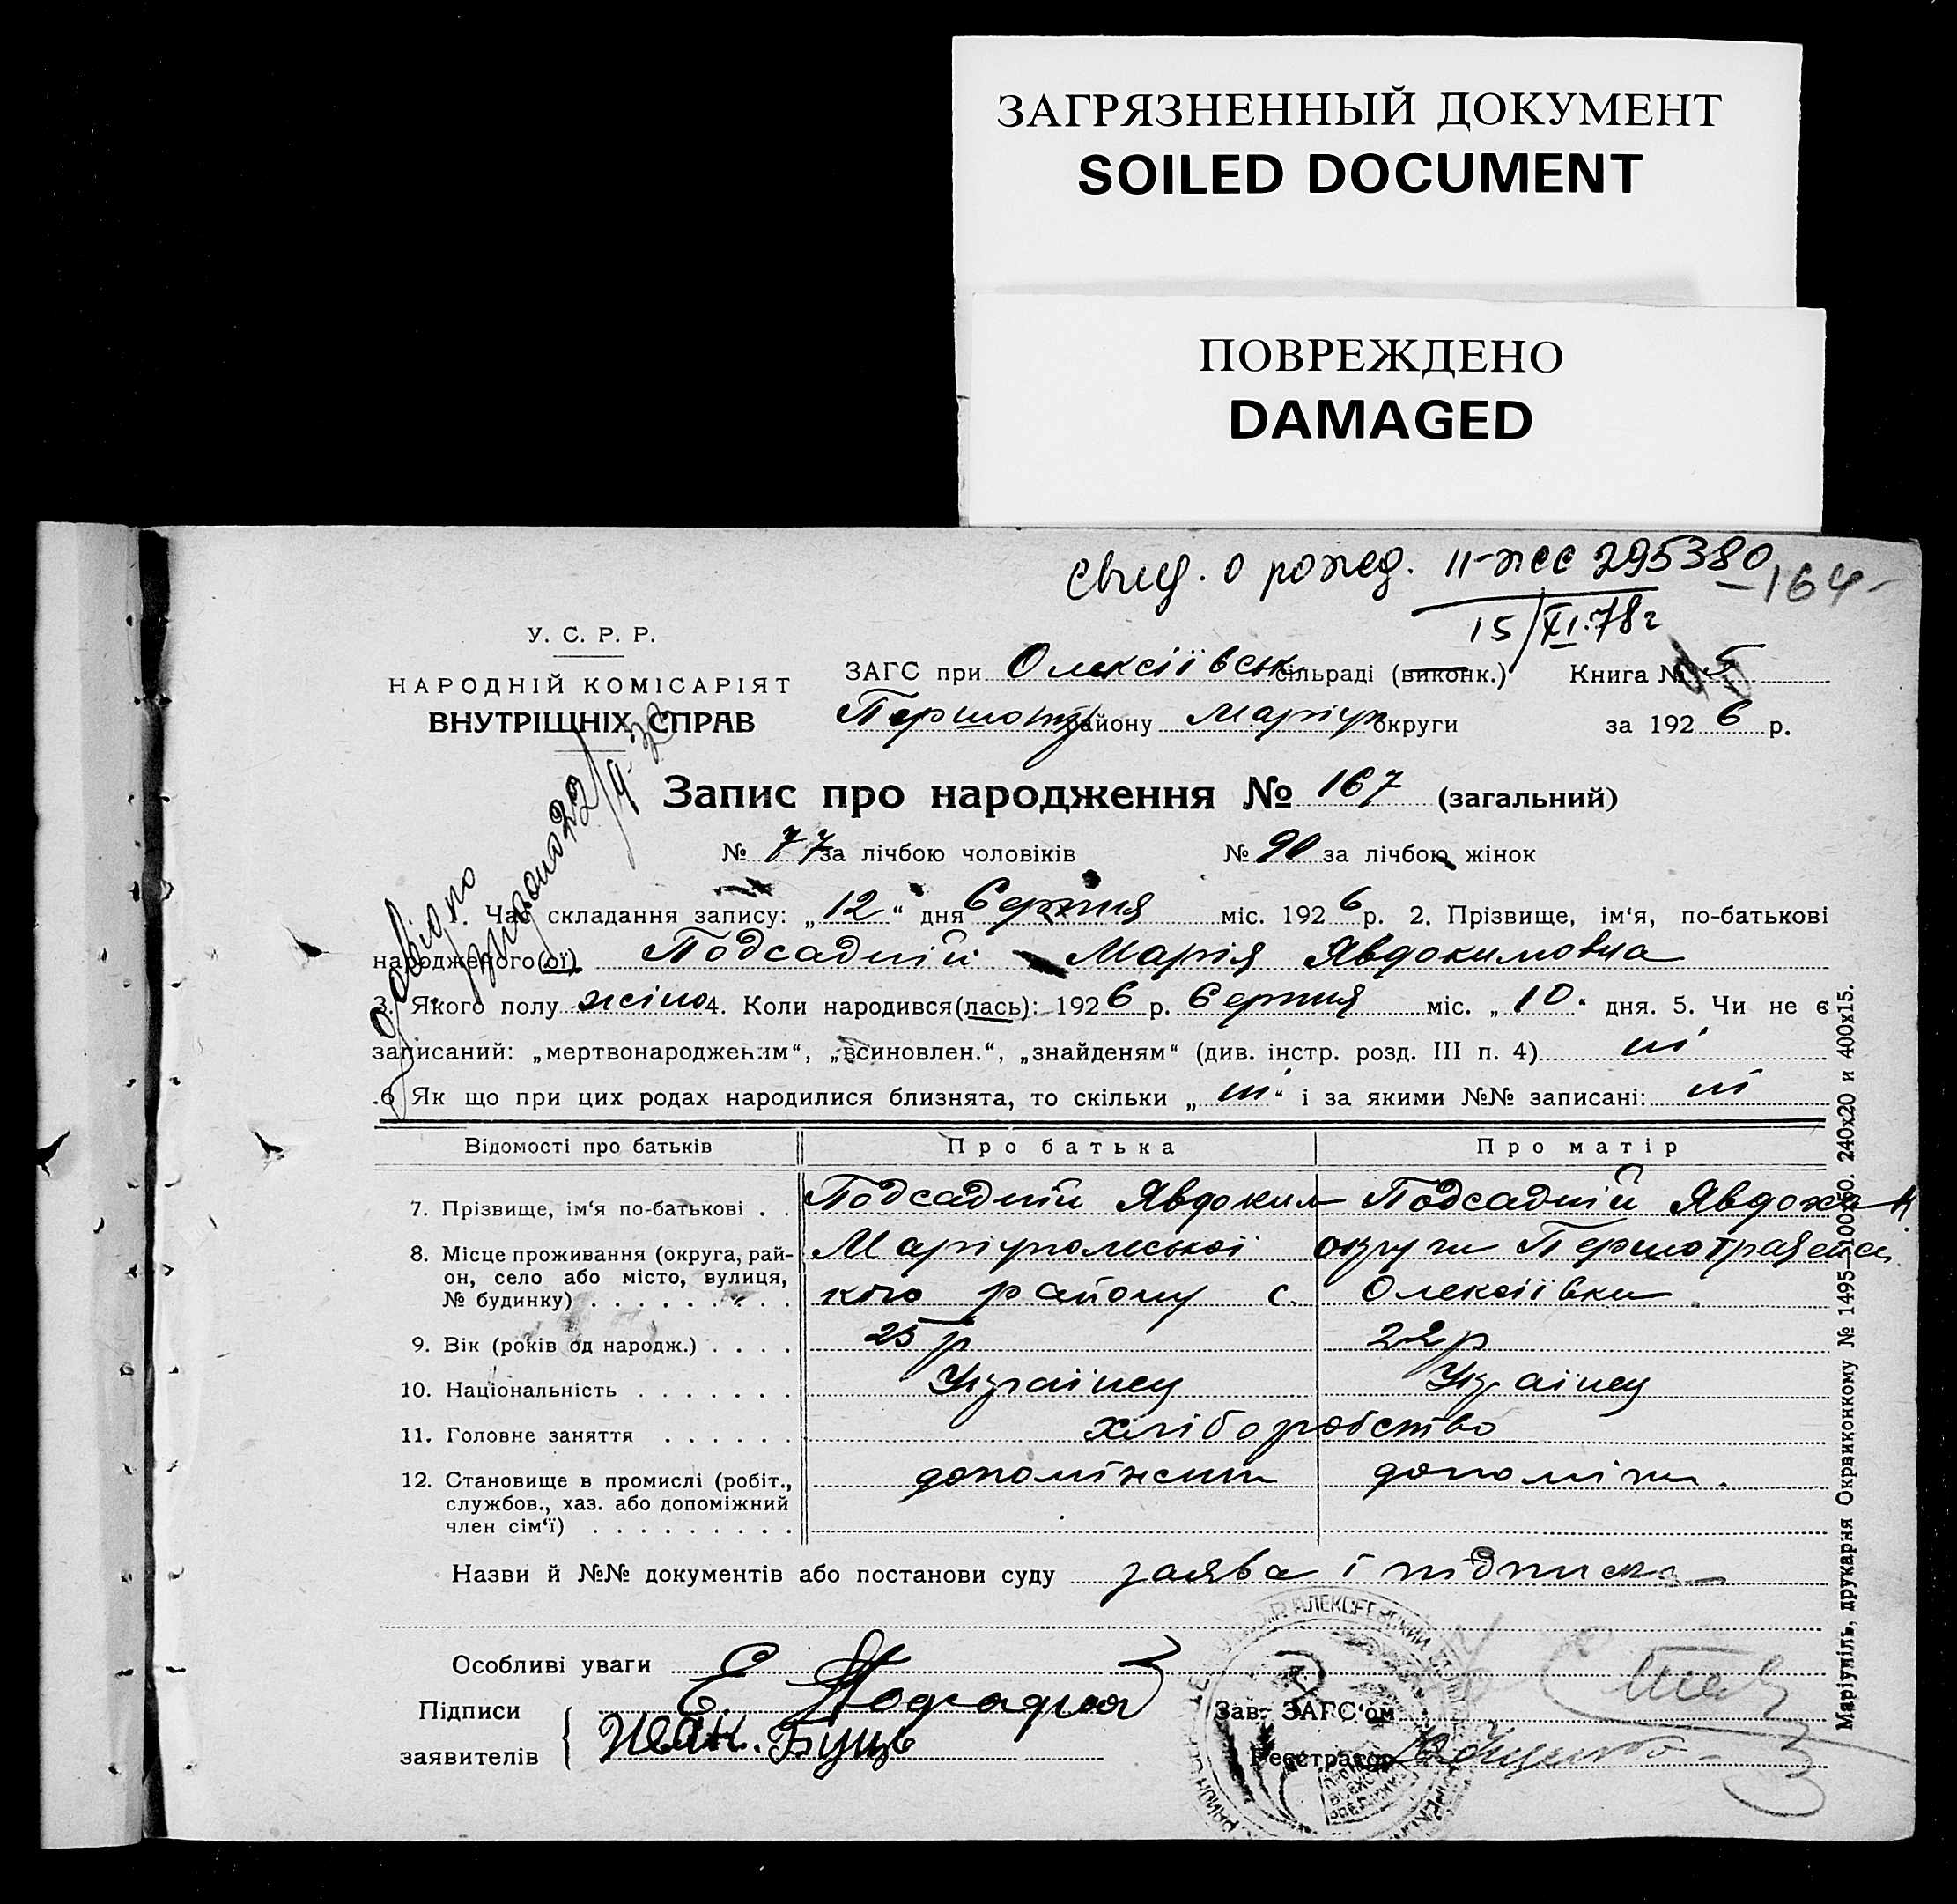 ЗАГРЯЗНЕННЫЙ ДОКУМЕНТ
SOILED DOCUMENT
ПОВРЕЖДЕНО
DAMAGED
свид. о рожд. II-жс 295380
-164-
15/XI.78г
У. С. Р. Р.
НАРОДНІЙ КОМІСАРІЯТ
ВНУТРІШНІХ СПРАВ
ЗАГС при Олексіївськ сільраді (виконк.) Книга № 5
Першотр району Маріуп округи за 1926 р.
Запис про народження № 167 (загальний)
№ 77 за лічбою чоловіків № 90 за лічбою жінок
1. Час складання запису: „12“ дня Серпня міс. 1926 р. 2. Прізвище, ім'я, по-батькові
народженого(ої) Подсадній Марія Явдокимовна
3. Якого полу жіно 4. Коли народився(лась): 1926 р. Серпня міс. „10“ дня. 5. Чи не є
записаний: „мертвонародженим“, „всиновлен.“, „знайденям“ (див. інстр. розд. III п. 4) ні
6 Як що при цих родах народилися близнята, то скільки „ні“ і за якими №№ записані: ні
Відомості про батьків Про батька Про матір
7. Прізвище, ім'я по-батькові . . Подсадній Явдоким Подсадній Явдоха
8. Місце проживання (округа, рай- Маріупольської округи Першотравенсь
он, село або місто, вулиця,
№ будинку) кого району с. Олексіївки
9. Вік (років од народж.) . . . . 25 р 22 р
10. Національність . . . . . . . Українец Українец
11. Головне заняття . . . . . . хліборобство
12. Становище в промислі (робіт., допоміжний допоміж.
службов., хаз. або допоміжний
член сім'ї) . . . . . . . . .
Назви й №№ документів або постанови суду заява і підписка
Особливі уваги
Підписи
заявителів Иван. Буць
Зав. ЗАГС'ом
Реєстратор
Маріупіль, друкарня Окрвиконкому № 1495—100х60. 240х20 и 400х15.